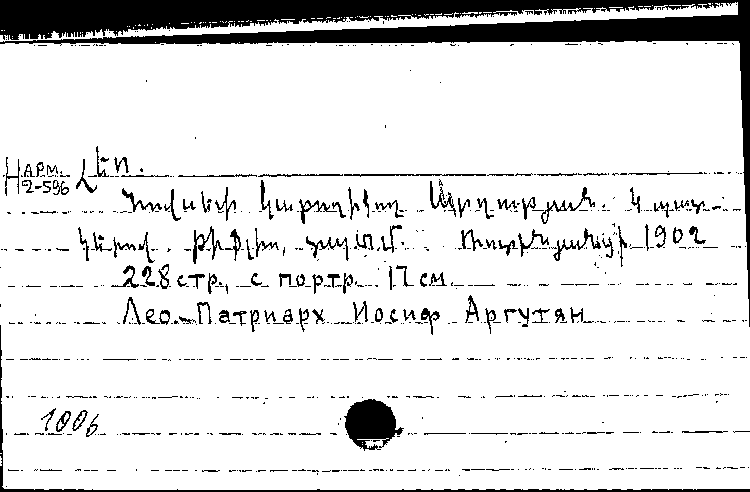 Н АРМ. 2-596 Լեո.
Հովսեփ կաթողիկոս Արղության. 4 պատ-
կերով. Թիֆլիս, տպ. 1902
228 стр., с портр. 17 см.
Лео.-Патриарх Иосиф Аргутян
1006